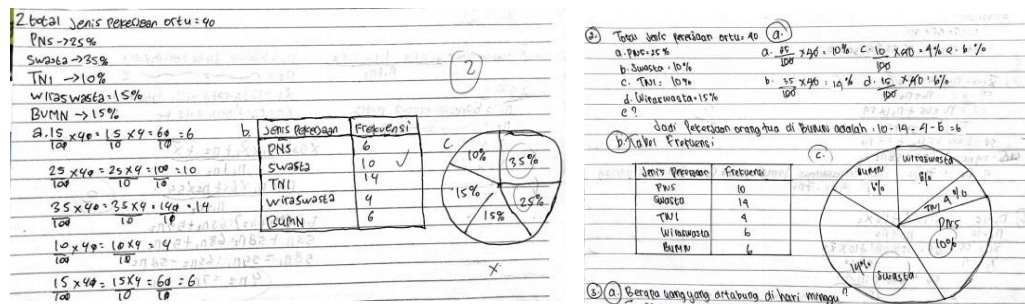 2. total Jenis Pekerjaan ortu = 40
PNS → 25%
Swasta → 35%
TNI → 10%
wiraswasta = 15%
BUMN → 15%
a. 15/100 x 40 = 15 x 4/10 = 60/10 = 6
25/100 x 40 = 25 x 4/10 = 100/10 = 10
35/100 x 40 = 35 x 4/10 = 140/10 = 14
10/100 x 40 = 10 x 4/10 = 4
15/100 x 40 = 15 x 4/10 = 60/10 = 6
2
b.
Jenis Pekerjaan Frekuensi
PNS 6
Swasta 10
TNI 14
wiraswasta 4
BUMN 6
C.
10% 35%
15% 25%
15%
x
2. Total Jenis pekerjaan ortu = 40 a.
a. PNS = 25%
b. Swasta = 10%
c. TNI = 10%
d. Wiraswasta = 15%
e ?
a. 25/100 x 40 = 10% c. 10/100 x 40 = 4% e. 6%
b. 35/100 x 40 = 14% d. 15/100 x 40 = 6%
Jadi Pekerjaan orang tua di BUMN adalah = 10 - 14 - 4 - 6 = 6
b. Tabel Frekuensi
Jenis Pekerjaan Frekuensi
PNS 10
Swasta 14
TNI 4
Wiraswasta 6
BUMN 6
C.
BUMN 6%
wiraswasta 6%
TNI 4%
PNS 10%
14% Swasta
3. a. Berapa uang yang ditabung di hari minggu?